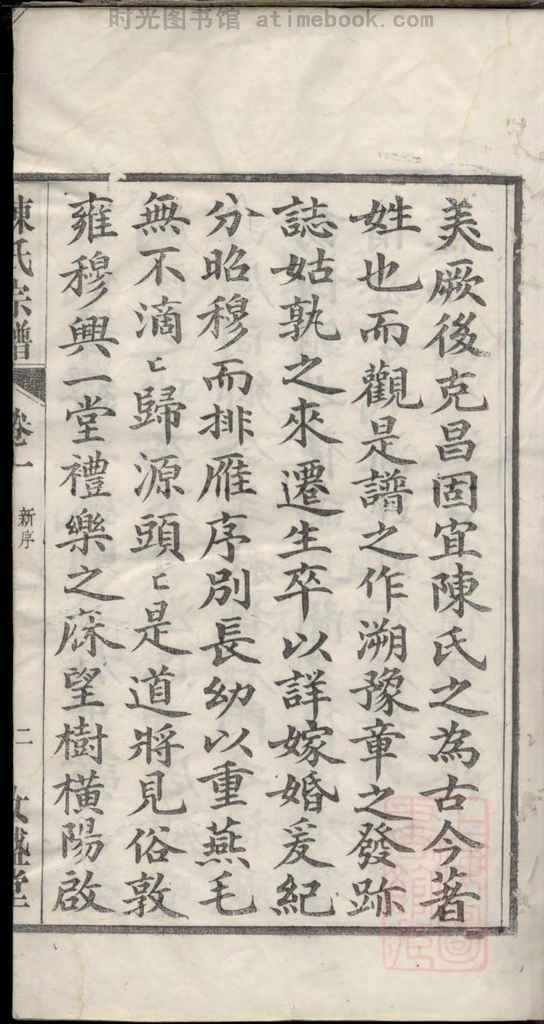 时光图书馆 atimebook.com
美厥後克昌固宜陳氏之為古今著
姓也而觀是譜之作溯豫章之發跡
誌姑孰之來遷生卒以詳嫁婚爰紀
分昭穆而排雁序別長幼以重燕毛
無不滴〻歸源頭〻是道將見俗敦
雍穆興一堂禮樂之庥望樹橫陽啟
陳氏宗譜 卷一 新序 二